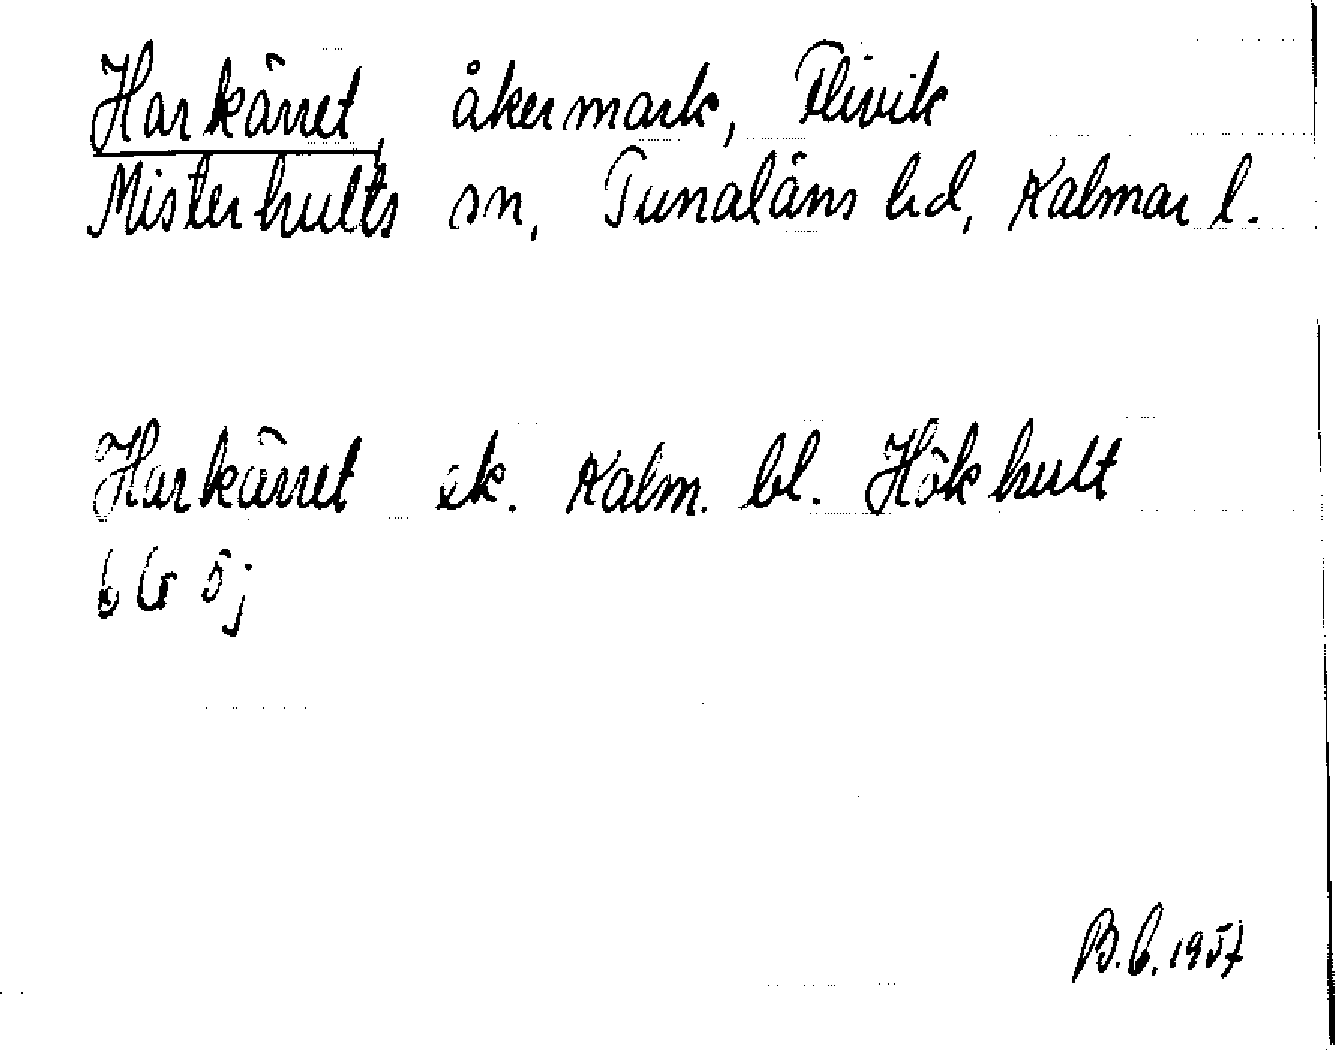 Harkärret, åkermark, Flivik
Misterhults sn, Tunaläns hd, Kalmar l.
Harkärret ek. Kalm. bl. Hökhult
6G 5j
B.G. 1957